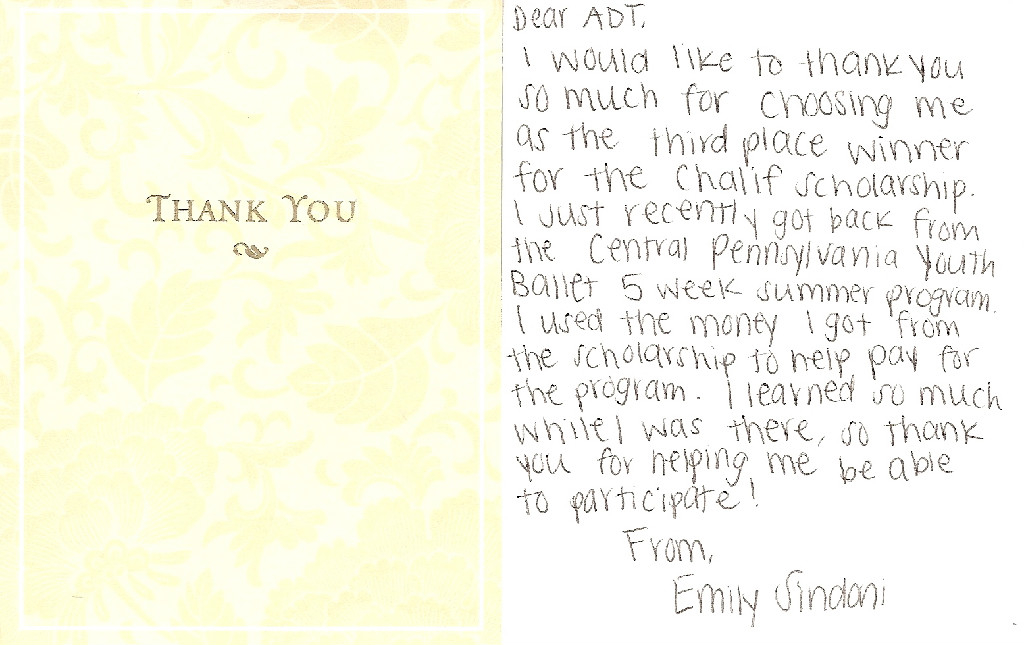 THANK YOU
Dear ADT,
I would like to thank you
so much for choosing me
as the third place winner
for the Chalif scholarship.
I just recently got back from
the Central Pennsylvania Youth
Ballet 5 week summer program.
I used the money I got from
the scholarship to help pay for
the program. I learned so much
while I was there, so thank
you for helping me be able
to participate!
From,
Emily Sindoni